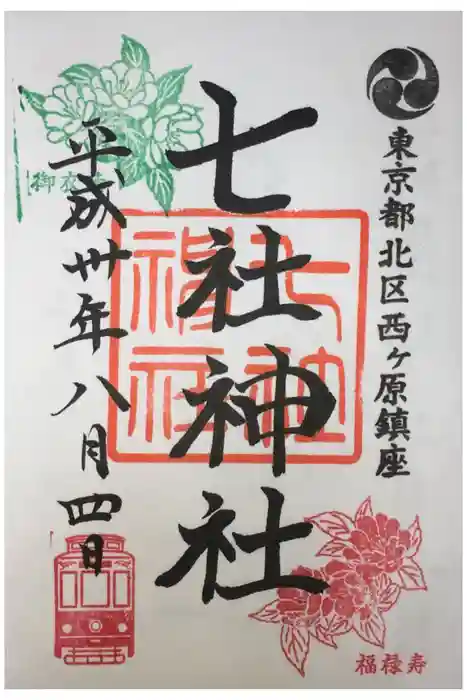 東京都北区西ヶ原鎮座
七社神社
七社神社
平成卅年八月四日
御衣黄
福禄寿